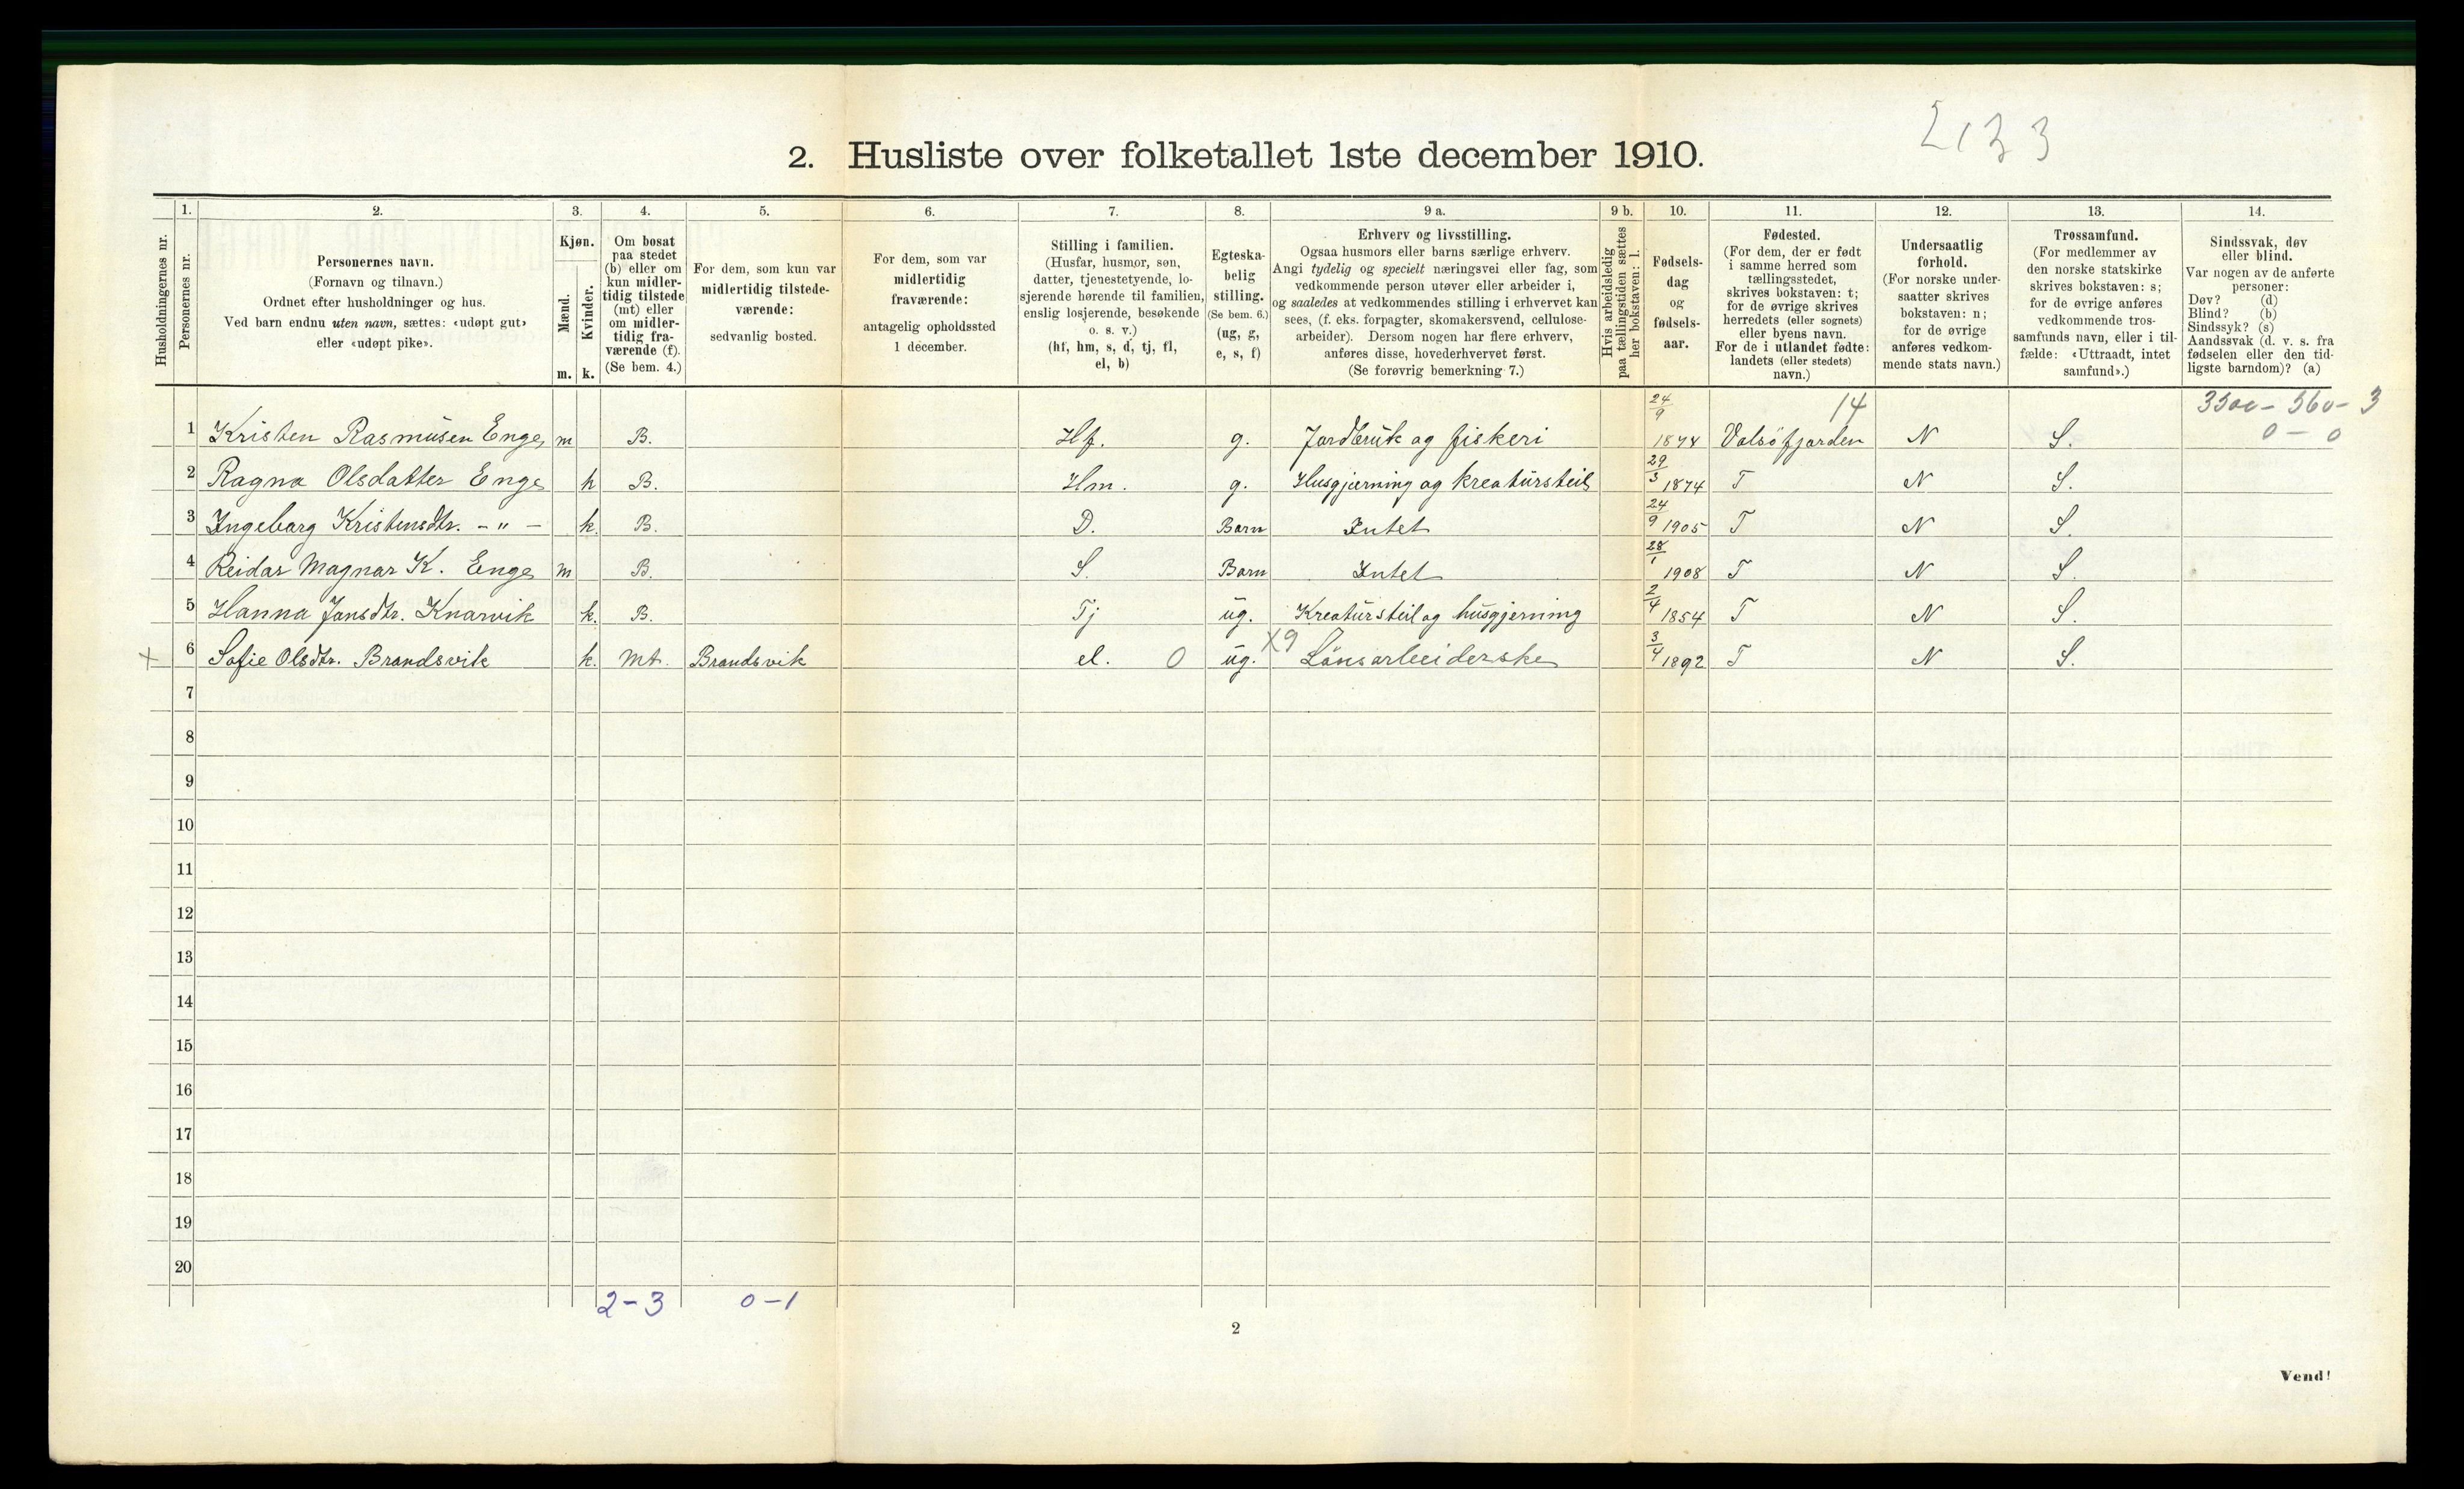 2133
2. Husliste over folketallet 1ste december 1910.
Husholdningernes nr.
1. Personernes nr.
2. Personernes navn. (Fornavn og tilnavn.) Ordnet efter husholdninger og hus. Ved barn endnu uten navn, sættes: «udøpt gut» eller «udøpt pike».
3. Kjøn. Mænd. m. Kvinder. k.
4. Om bosat paa stedet (b) eller om kun midlertidig tilstede (mt) eller om midlertidig fraværende (f). (Se bem. 4.)
5. For dem, som kun var midlertidig tilstedeværende: sedvanlig bosted.
6. For dem, som var midlertidig fraværende: antagelig opholdssted 1 december.
7. Stilling i familien. (Husfar, husmor, søn, datter, tjenestetyende, losjerende hørende til familien, enslig losjerende, besøkende o. s. v.) (hf, hm, s, d, tj, fl, el, b)
8. Egteskabelig stilling. (Se bem. 6.) (ug, g, e, s, f)
9 a. Erhverv og livsstilling. Ogsaa husmors eller barns særlige erhverv. Angi tydelig og specielt næringsvei eller fag, som vedkommende person utøver eller arbeider i, og saaledes at vedkommendes stilling i erhvervet kan sees, (f. eks. forpagter, skomakersvend, cellulosearbeider). Dersom nogen har flere erhverv, anføres disse, hovederhvervet først. (Se forøvrig bemerkning 7.)
9 b. Hvis arbeidsledig paa tællingstiden sættes her bokstaven: l.
10. Fødselsdag og fødselsaar.
11. Fødested. (For dem, der er født i samme herred som tællingsstedet, skrives bokstaven: t; for de øvrige skrives herredets (eller sognets) eller byens navn. For de i utlandet fødte: landets (eller stedets) navn.)
12. Undersaatlig forhold. (For norske undersaatter skrives bokstaven: n; for de øvrige anføres vedkommende stats navn.)
13. Trossamfund. (For medlemmer av den norske statskirke skrives bokstaven: s; for de øvrige anføres vedkommende trossamfunds navn, eller i tilfælde: «Uttraadt, intet samfund».)
14. Sindssvak, døv eller blind. Var nogen av de anførte personer: Døv? (d) Blind? (b) Sindssyk? (s) Aandssvak (d. v. s. fra fødselen eller den tidligste barndom)? (a)
14 3500 - 560 - 3
0 - 0
1 Kristen Rasmusen Enge m B. Hf. g. Jordbruk og fiskeri 24/9 1874 Valsöfjorden N S.
2 Ragna Olsdatter Enge k B. Hm. g. Husgjerning og kreaturstell 29/3 1874 T N S.
3 Ingeborg Kristensdtr. - " - k. B. D. Barn Intet 24/9 1905 T N S.
4 Reidar Magnar K. Enge m B. S. Barn Intet 28/1 1908 T N S.
5 Hanna Jansdtr. Knarvik k. B. Tj ug. Kreaturstell og husgjerning 2/4 1854 T N S.
+ 6 Sofie Olsdtr. Brandsvik k. Mt. Brandsvik el. 0 ug. X9 Lönsarbeiderske 3/4 1892 T N S.
7
8
9
10
11
12
13
14
15
16
17
18
19
20
2 - 3 0 - 1
2
Vend!